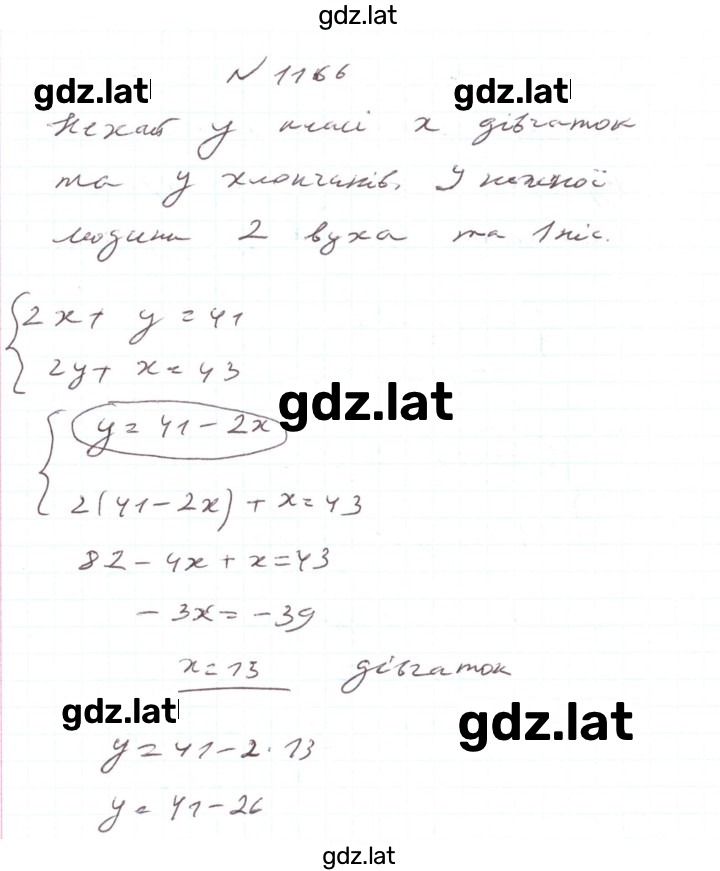 gdz.lat
№ 1166
gdz.lat gdz.lat
Нехай у класі x дівчаток
та y хлопчиків. У кожної
людини 2 вуха та 1 ніс.
2x + y = 41
2y + x = 43
gdz.lat
y = 41 - 2x
2(41 - 2x) + x = 43
82 - 4x + x = 43
- 3x = - 39
x = 13 дівчаток
gdz.lat gdz.lat
y = 41 - 2 · 13
y = 41 - 26
gdz.lat